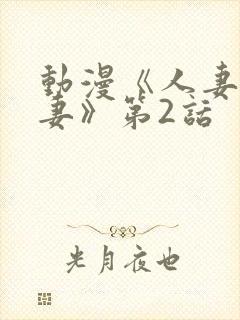 動漫《人妻
妻》第2話
光月夜也